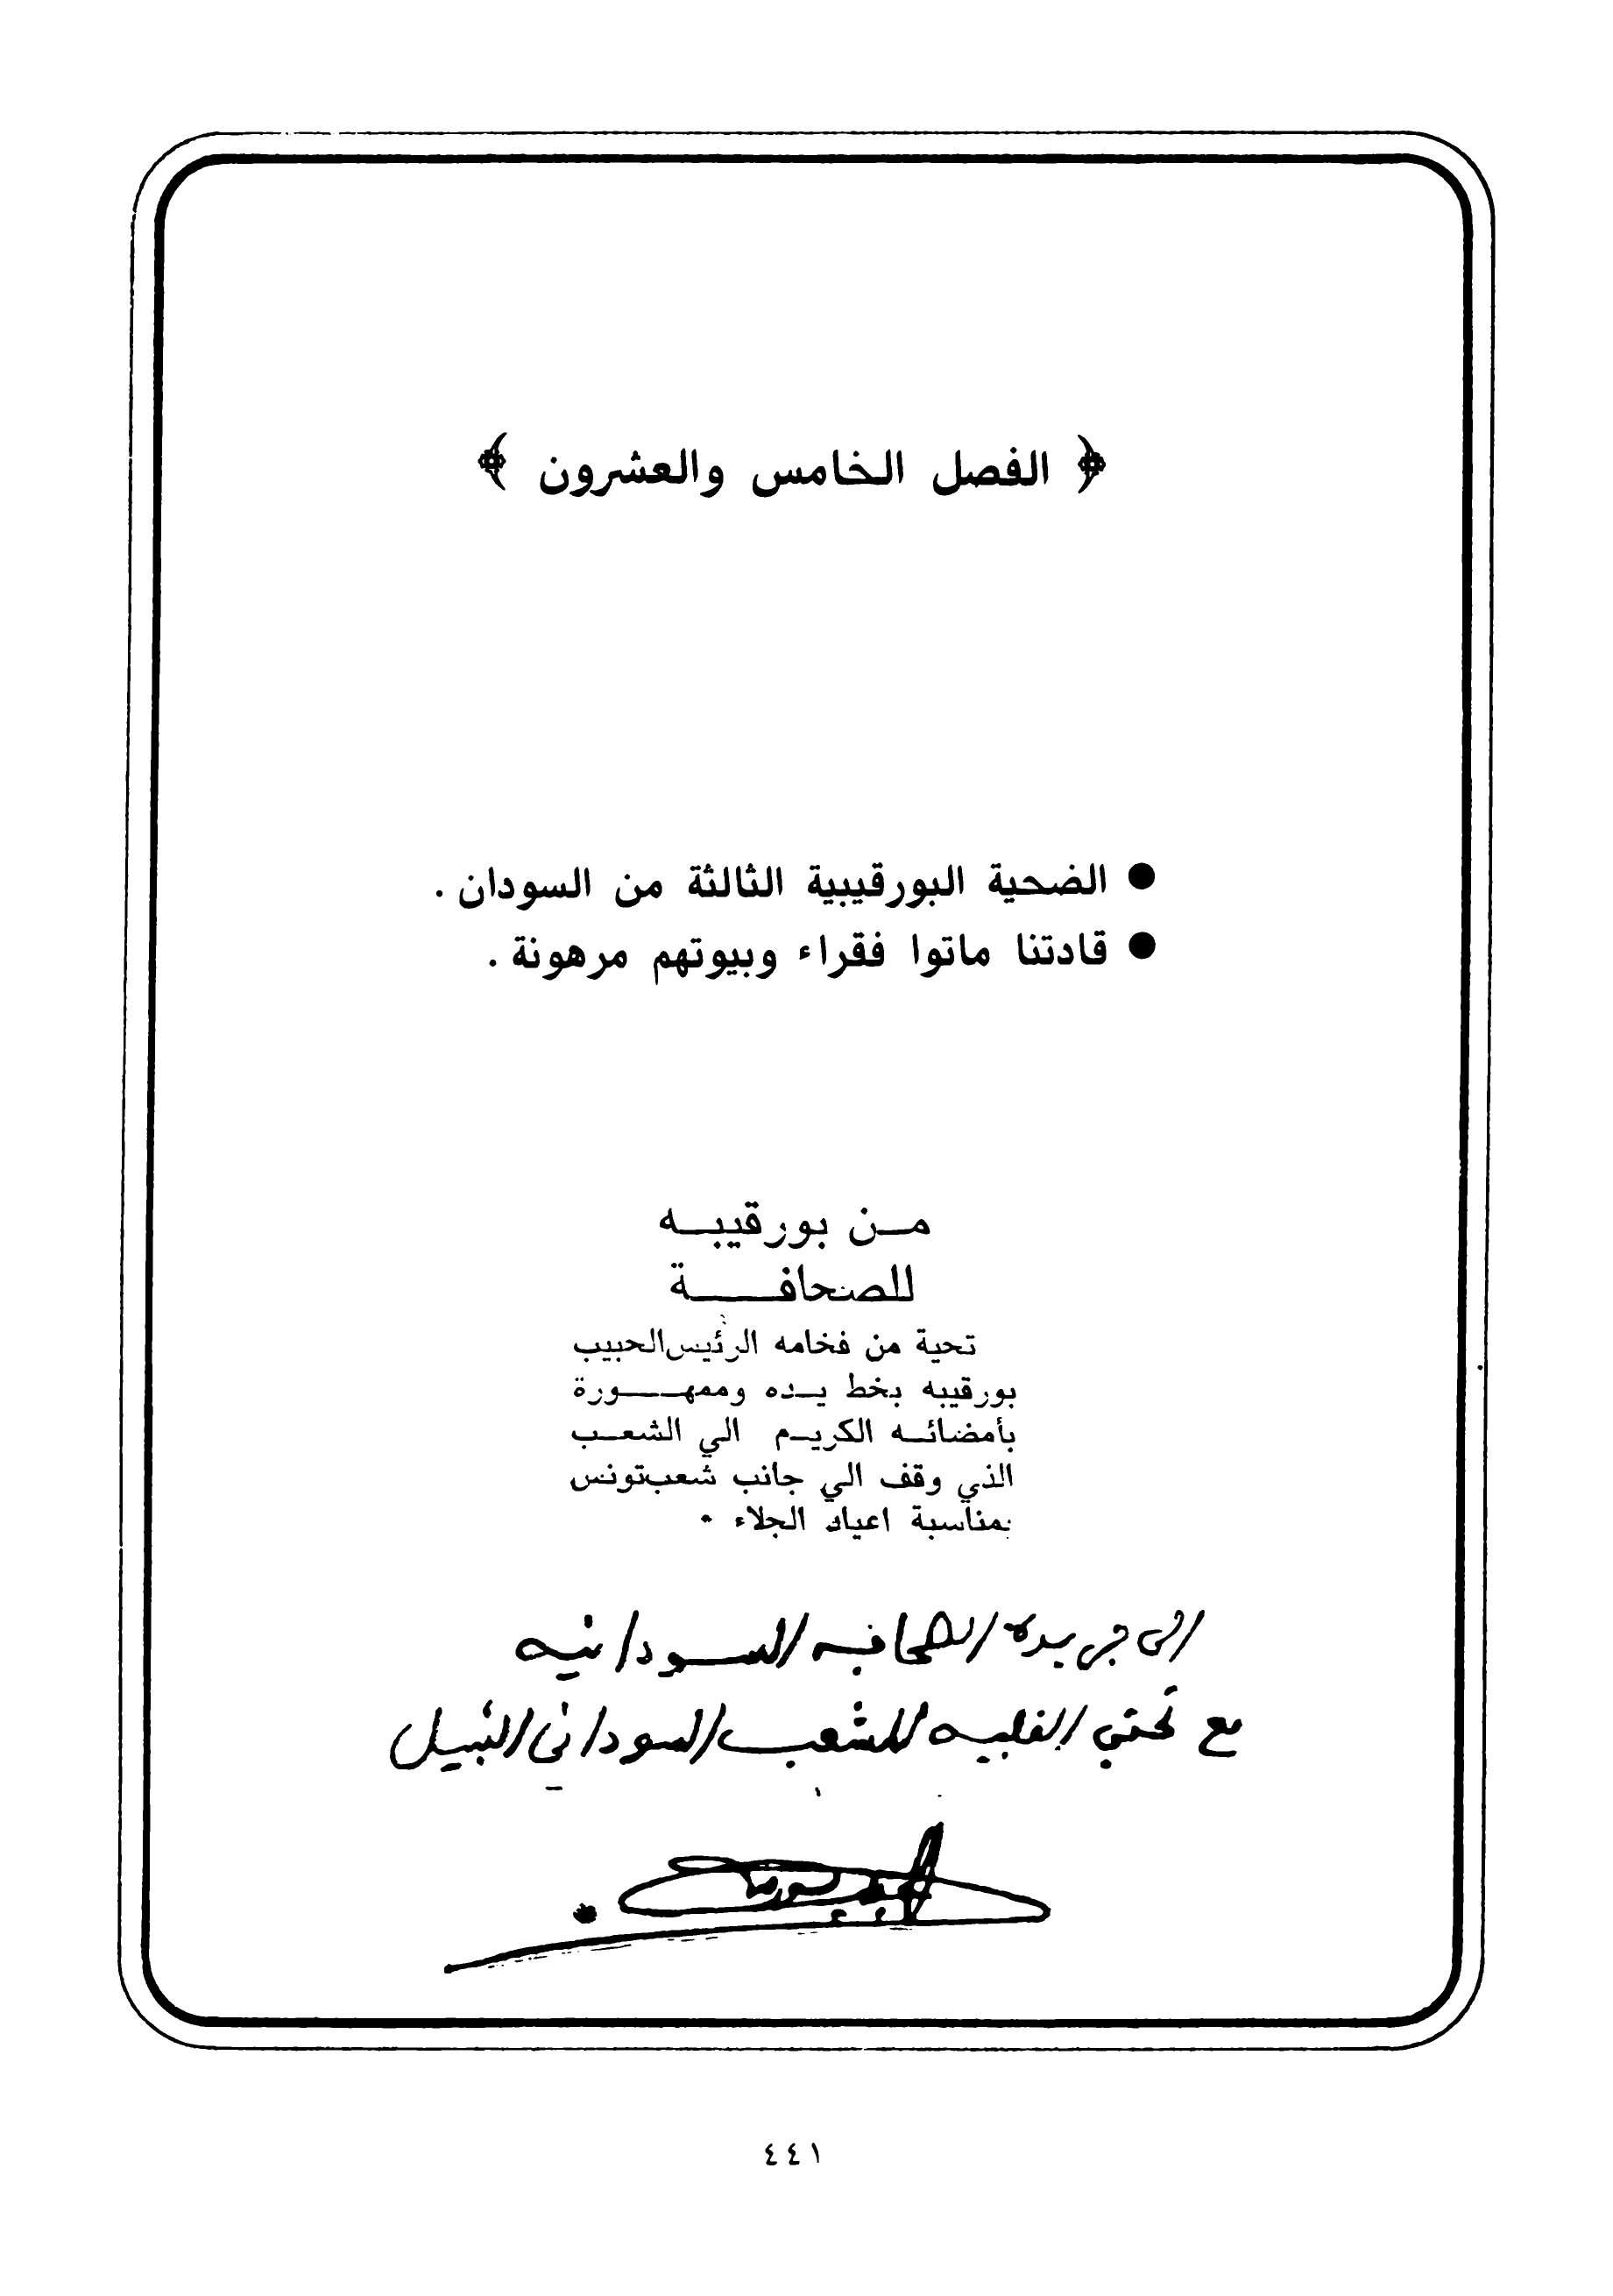 ﴿ الفصل الخامس والعشرون ﴾
● الضحية البورقيبية الثالثة من السودان .
● قادتنا ماتوا فقراء وبيوتهم مرهونة .
مـن بورقيبـه
للصحافـــة
تحية من فخامه الرئيس الحبيب
بورقيبه بخط يـده وممهـــورة
بأمضائـه الكريـم الي الشعـب
الذي وقف الي جانب شعب تونس
بمناسبة اعياد الجلاء •
الى جريدة الصحافيه السودانيه
مع تحيتي القلبيه للشعب السوداني النبيل
٤٤١